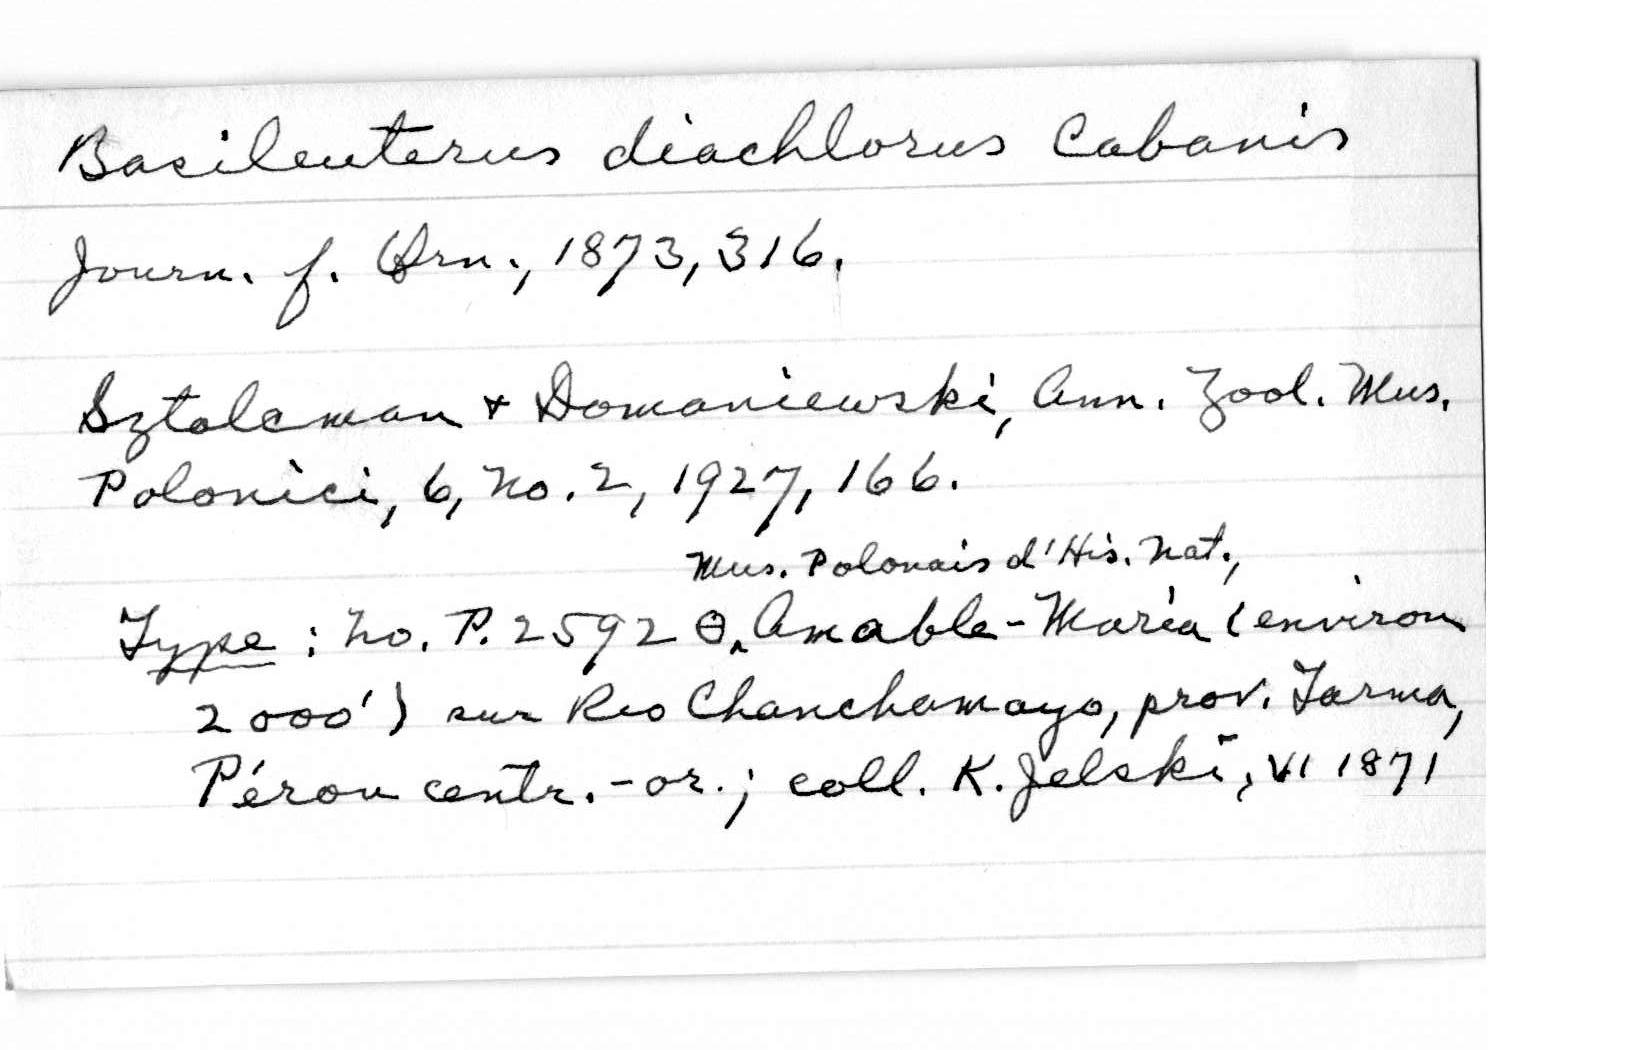 Basileuterus diachlorus Cabanis
Journ. f. Orn., 1873, 316.
Sztolcman & Domaniewski, Ann. Zool. Mus.
Polonici, 6, No. 2, 1927, 166.
Mus. Polonais d'His. Nat.,
Type : No. P. 2592 ʘ, Amable-Maria (environ
2000') sur Rio Chanchamayo, prov. Tarma,
Pérou centr.-or.; coll. K. Jelski, VI 1871